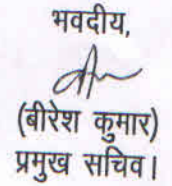 भवदीय,
(बीरेश कुमार)
प्रमुख सचिव।